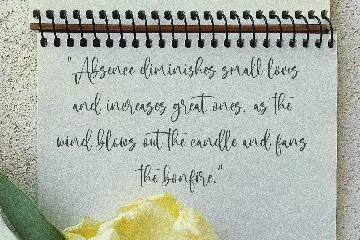 "Absence diminishes small loves
and increases great ones, as the
wind blows out the candle and fans
the bonfire."